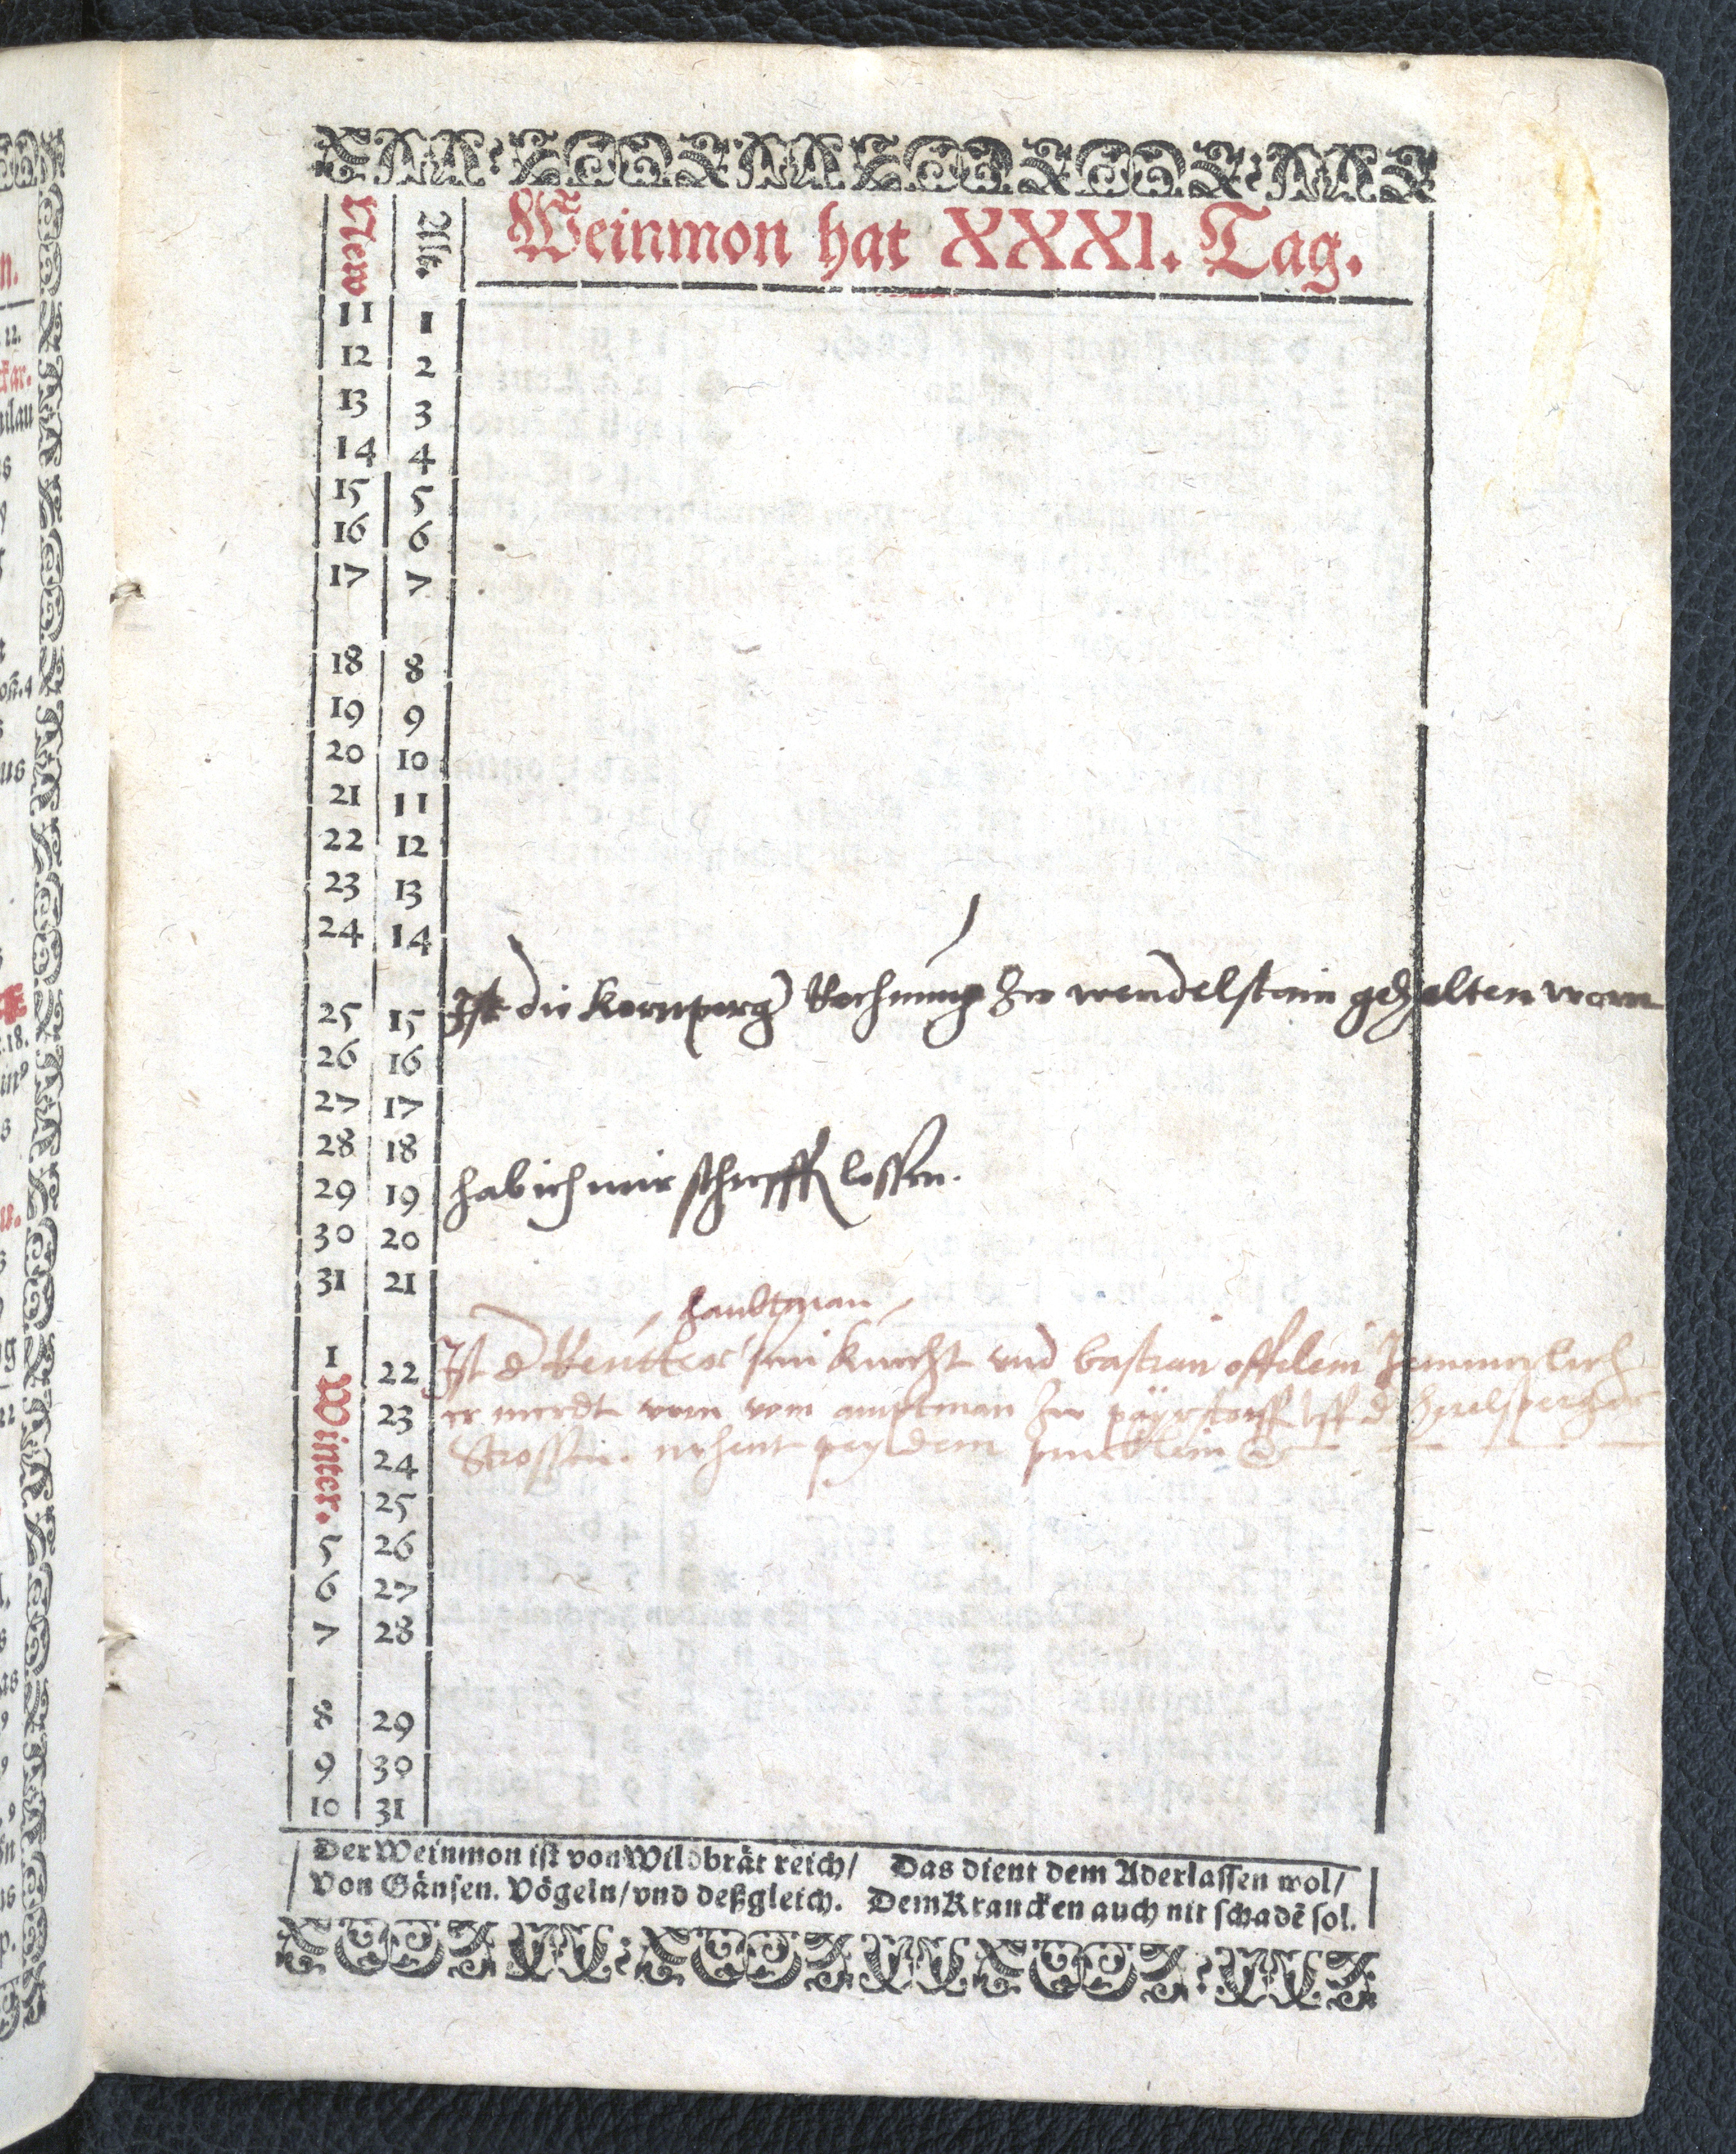 New
Alt.
Weinmon hat XXXI. Tag.
11 1
12 2
13 3
14 4
15 5
16 6
17 7
18 8
19 9
20 10
21 11
22 12
23 13
24 14
25 15 Ist die Kornperg Rechnung zw wendelstain gehalten worn
26 16
27 17
28 18
29 19 hab ich mir schrepffen lossen.
30 20
31 21
haubtman
1 22 Ist d Reutter sein knecht vnd bastian offelein Jemmerlich
Winter.
23 er mordt worn vom amptman zw päyrstorff vff d
24 Strossen. nehent pey dem
25
5 26
6 27
7 28
8 29
9 30
10 31
Der Weinmon ist von Wildbrät reich/ Das dient dem Aderlassen wol/
Von Gänsen. Vögeln/vnd deßgleich. Dem Krancken auch nit schadẽ sol.